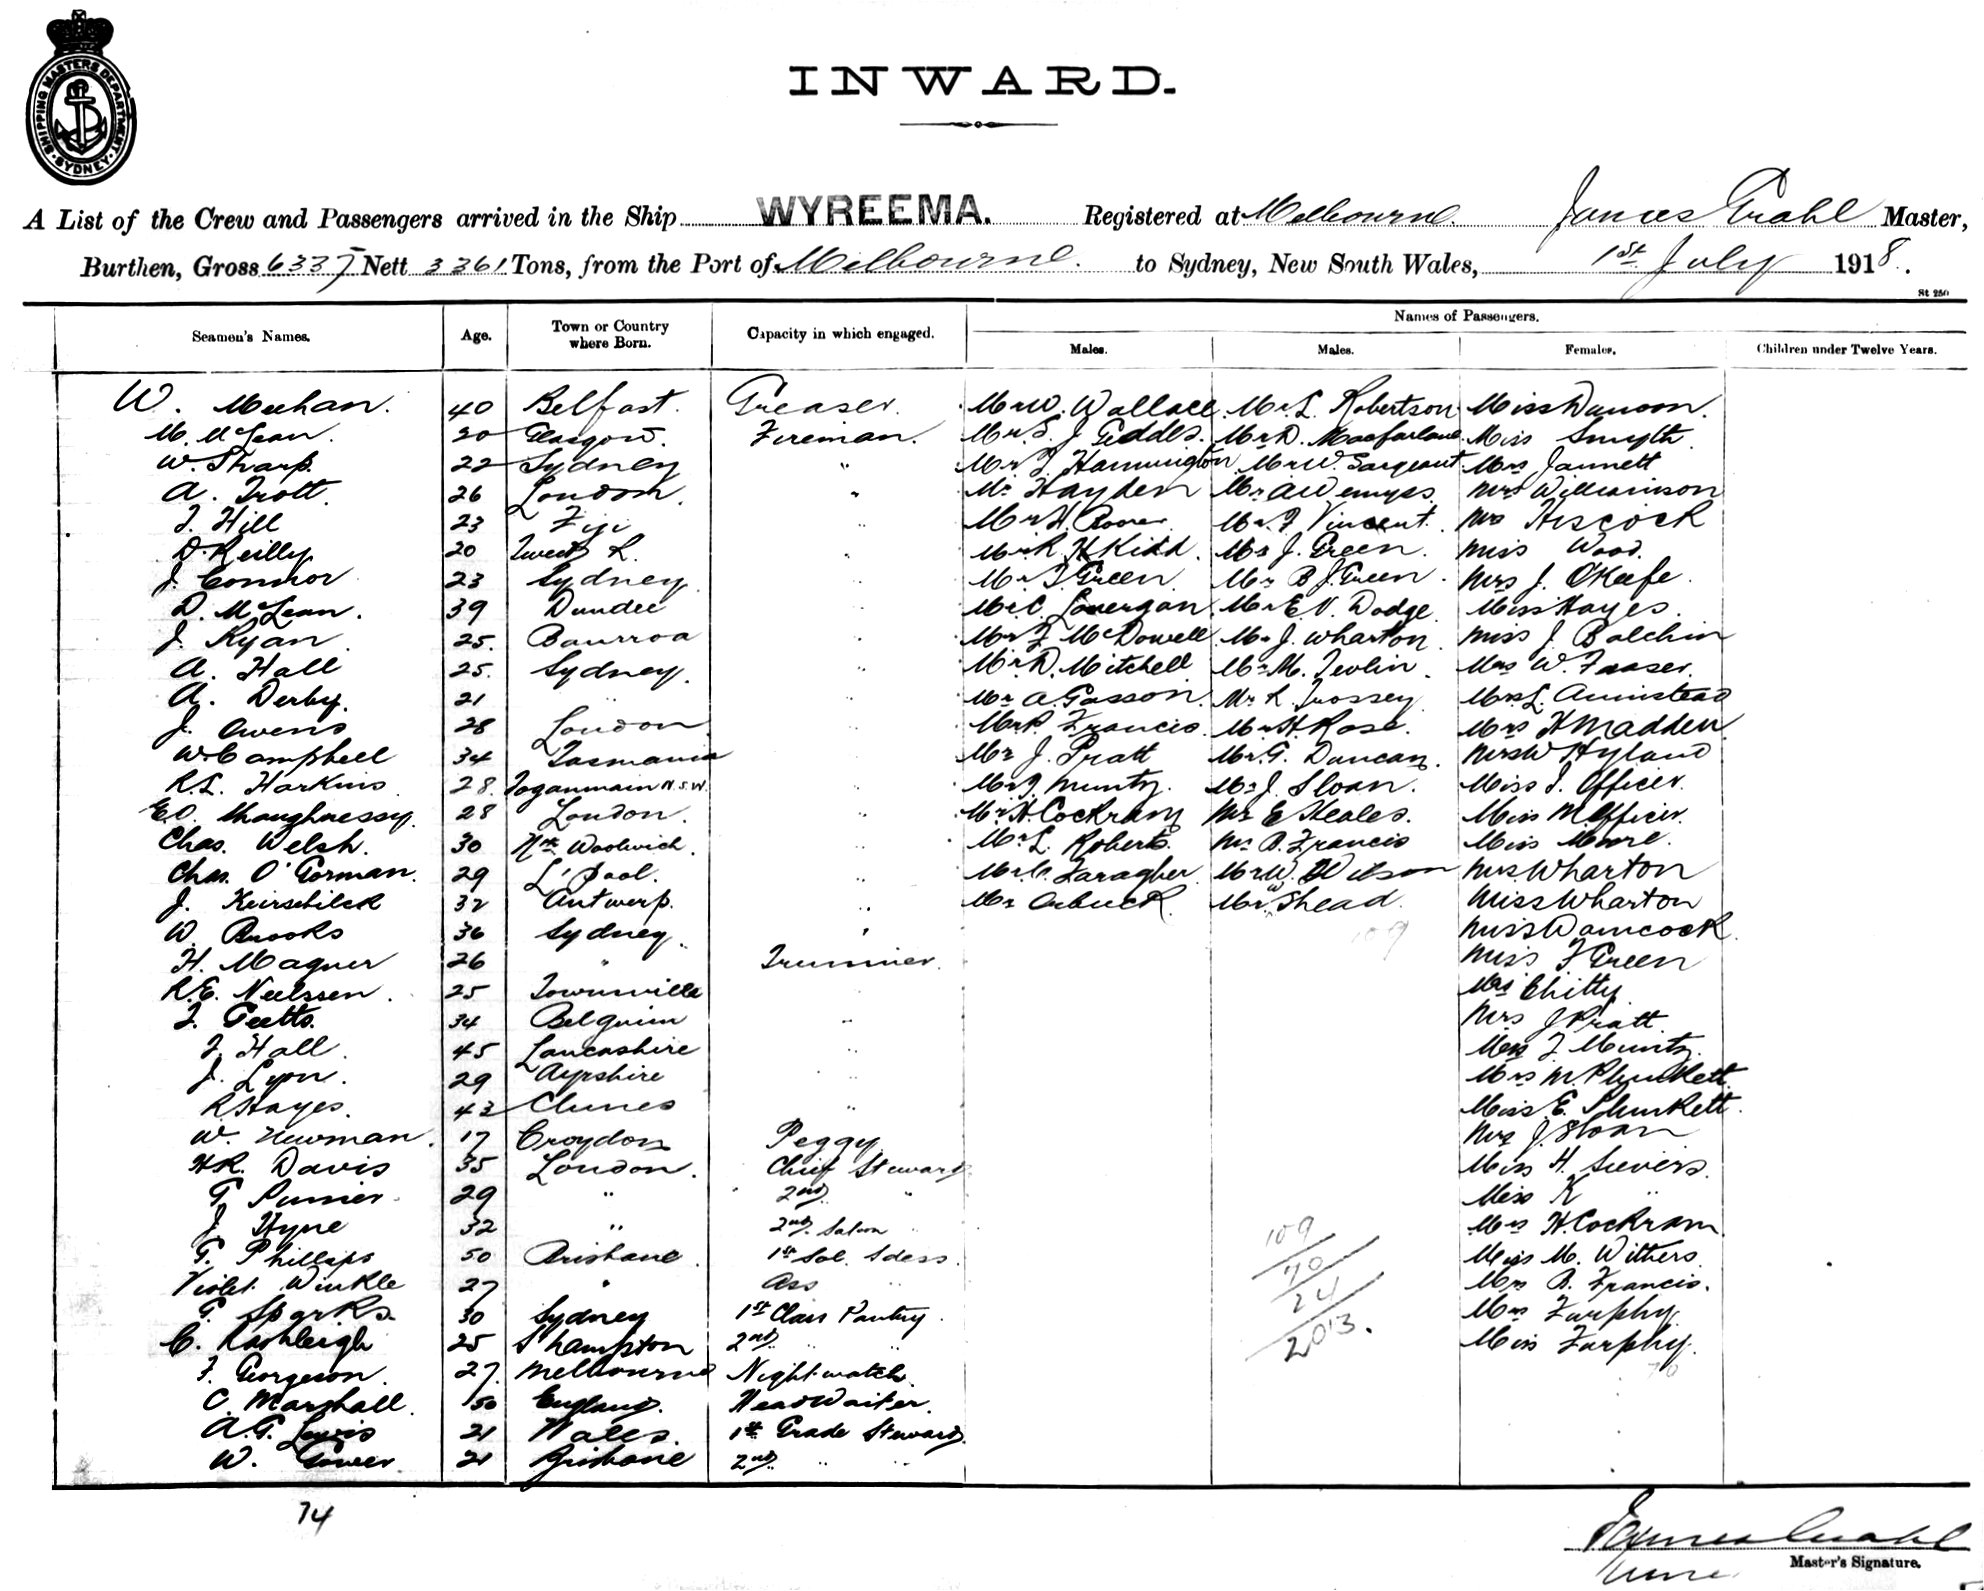 INWARD.
SHIPPING MASTERS DEPARTMENT SYDNEY
A List of the Crew and Passengers arrived in the Ship WYREEMA. Registered at Melbourne. James Grahl Master,
Burthen, Gross 6337 Nett 3361 Tons, from the Port of Melbourne. to Sydney, New South Wales, 1st July 1918.
St 250
Names of Passengers.
Seamen's Names. Age. Town or Country where Born. Capacity in which engaged. Males. Males. Females. Children under Twelve Years.
W. Meehan. 40 Belfast. Greaser. Mr W. Wallace. Mr L. Robertson Miss Dawson.
M. McLean. 20 Glasgow. Fireman. Mr S. J Geddes. Mr D. Macfarlane Miss Smyth
W. Sharp. 22 Sydney " Mr F. Hannington Mr W. Sargeant Mrs Jannett
A. Trott. 26 London. " Mr Hayden Mr A Wemyss Mrs Williamson
T. Hill 23 Fiji " Mr H. Mr F Vincent. Mrs Hiscock
D. Reilly 20 Tweed R. " Mr R. H Kidd. Mr J. Green. Miss Wood.
J. Connor 23 Sydney " Mr T Green Mr B J. Green. Mrs J. O'Keefe.
D. McLean. 39 Dundee " Mr C. Lonergan. Mr E. V. Dodge. Miss Hayes.
J. Ryan 25. " Mr F McDowell Mr J. Wharton Miss J. Balchin
A. Hall 25. Sydney. " Mr D. Mitchell Mr M. Devlin. Mrs W. Fraser.
A. Derby. 21 " " Mr A. Gasson. Mr R. Trossey Mrs L. Armistead
J. Owens 28 London " Mr P. Francis. Mr H Rose. Mrs H Madden
W. Campbell 34 Tasmania " Mr J. Pratt Mr G. Duncan. Mrs W Hyland
R. L. Harkins 28. Toganmain N.S.W. " Mr F. Muntz. Mr J. Sloan. Miss I. Officer.
E. O. Shaughnessy. 28 London. " Mr H. Cockram Mr E Heales. Miss M. Officer.
Chas. Welsh. 30 Nth Woolwich. " Mr L. Roberts. Mr B. Francis Miss Moore.
Chas. O'Gorman. 29 L'pool. " Mr C. Faragher Mr W. Wilson Mrs. Wharton
J. Keirschilck 32 Antwerp. " Mr Arbuck. Mr W Shead. Miss Wharton
W Brooks 36 Sydney. " 109 Miss Damcock.
H. Magner 26 " Trimmer. Miss F Green
R. E. Neilssen. 25 Townsville " Mrs Chitty
J. Geetts. 34 Belguim " Mrs J Pratt.
F. Hall. 45 Lancashire " Mrs F Muntz.
J. Lyon. 29 Ayrshire " Mrs M. Plunkett.
R Hayes. 43 Clunes " Miss E. Plunkett.
W. Newman. 17 Croydon Peggy Mrs J. Sloan
H R. Davis 35 London. Chief Steward Miss H. Sievers.
G. Purrier. 29 " 2nd " Miss K "
J Hyne 32 " 2nd Saloon " 109 Mrs H. Cockram
G. Phillips 50 Brisbane. 1st Sal. Sdess. 70 Miss M. Withers
Violet Winkle 27 " Ass " 24 Mrs B. Francis.
G. Sparks. 30 Sydney 1st Class Pantry. 203. Mrs Furphy.
C. Rashleigh 25 S'hampton 2nd " " Miss Furphy.
F. Georgeson. 27. Melbourne Nightwatch. 70
C. Marshall. 50 England. Head Waiter.
A. G. Lewis 21 Wales. 1st Grade Steward.
W. Gower. 21 Brisbane 2nd " "
74
James Grahl
Master's Signature.